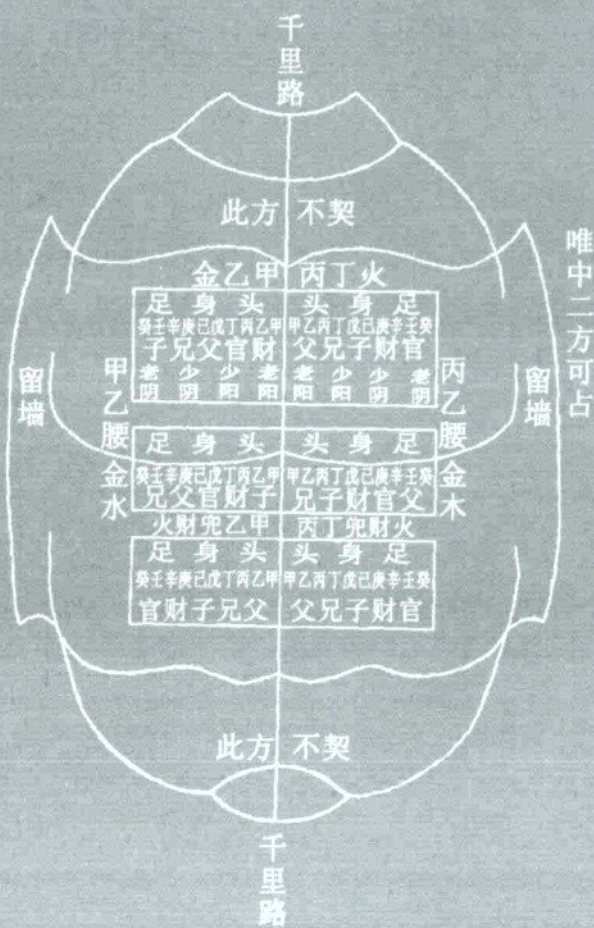 千里路
此方 不契
唯中二方可占
金乙甲 丙丁火
足身头 头身足
癸壬辛庚己戊丁丙乙甲 甲乙丙丁戊己庚辛壬癸
子兄父官财 父兄子财官
老阴 少阴 少阳 老阳 老阳 少阳 少阴 老阴
留墙
甲乙腰金水
丙乙腰金木
留墙
足身头 头身足
癸壬辛庚己戊丁丙乙甲 甲乙丙丁戊己庚辛壬癸
兄父官财子 兄子财官父
火财兜乙甲 丙丁兜财火
足身头 头身足
癸壬辛庚己戊丁丙乙甲 甲乙丙丁戊己庚辛壬癸
官财子兄父 父兄子财官
此方 不契
千里路